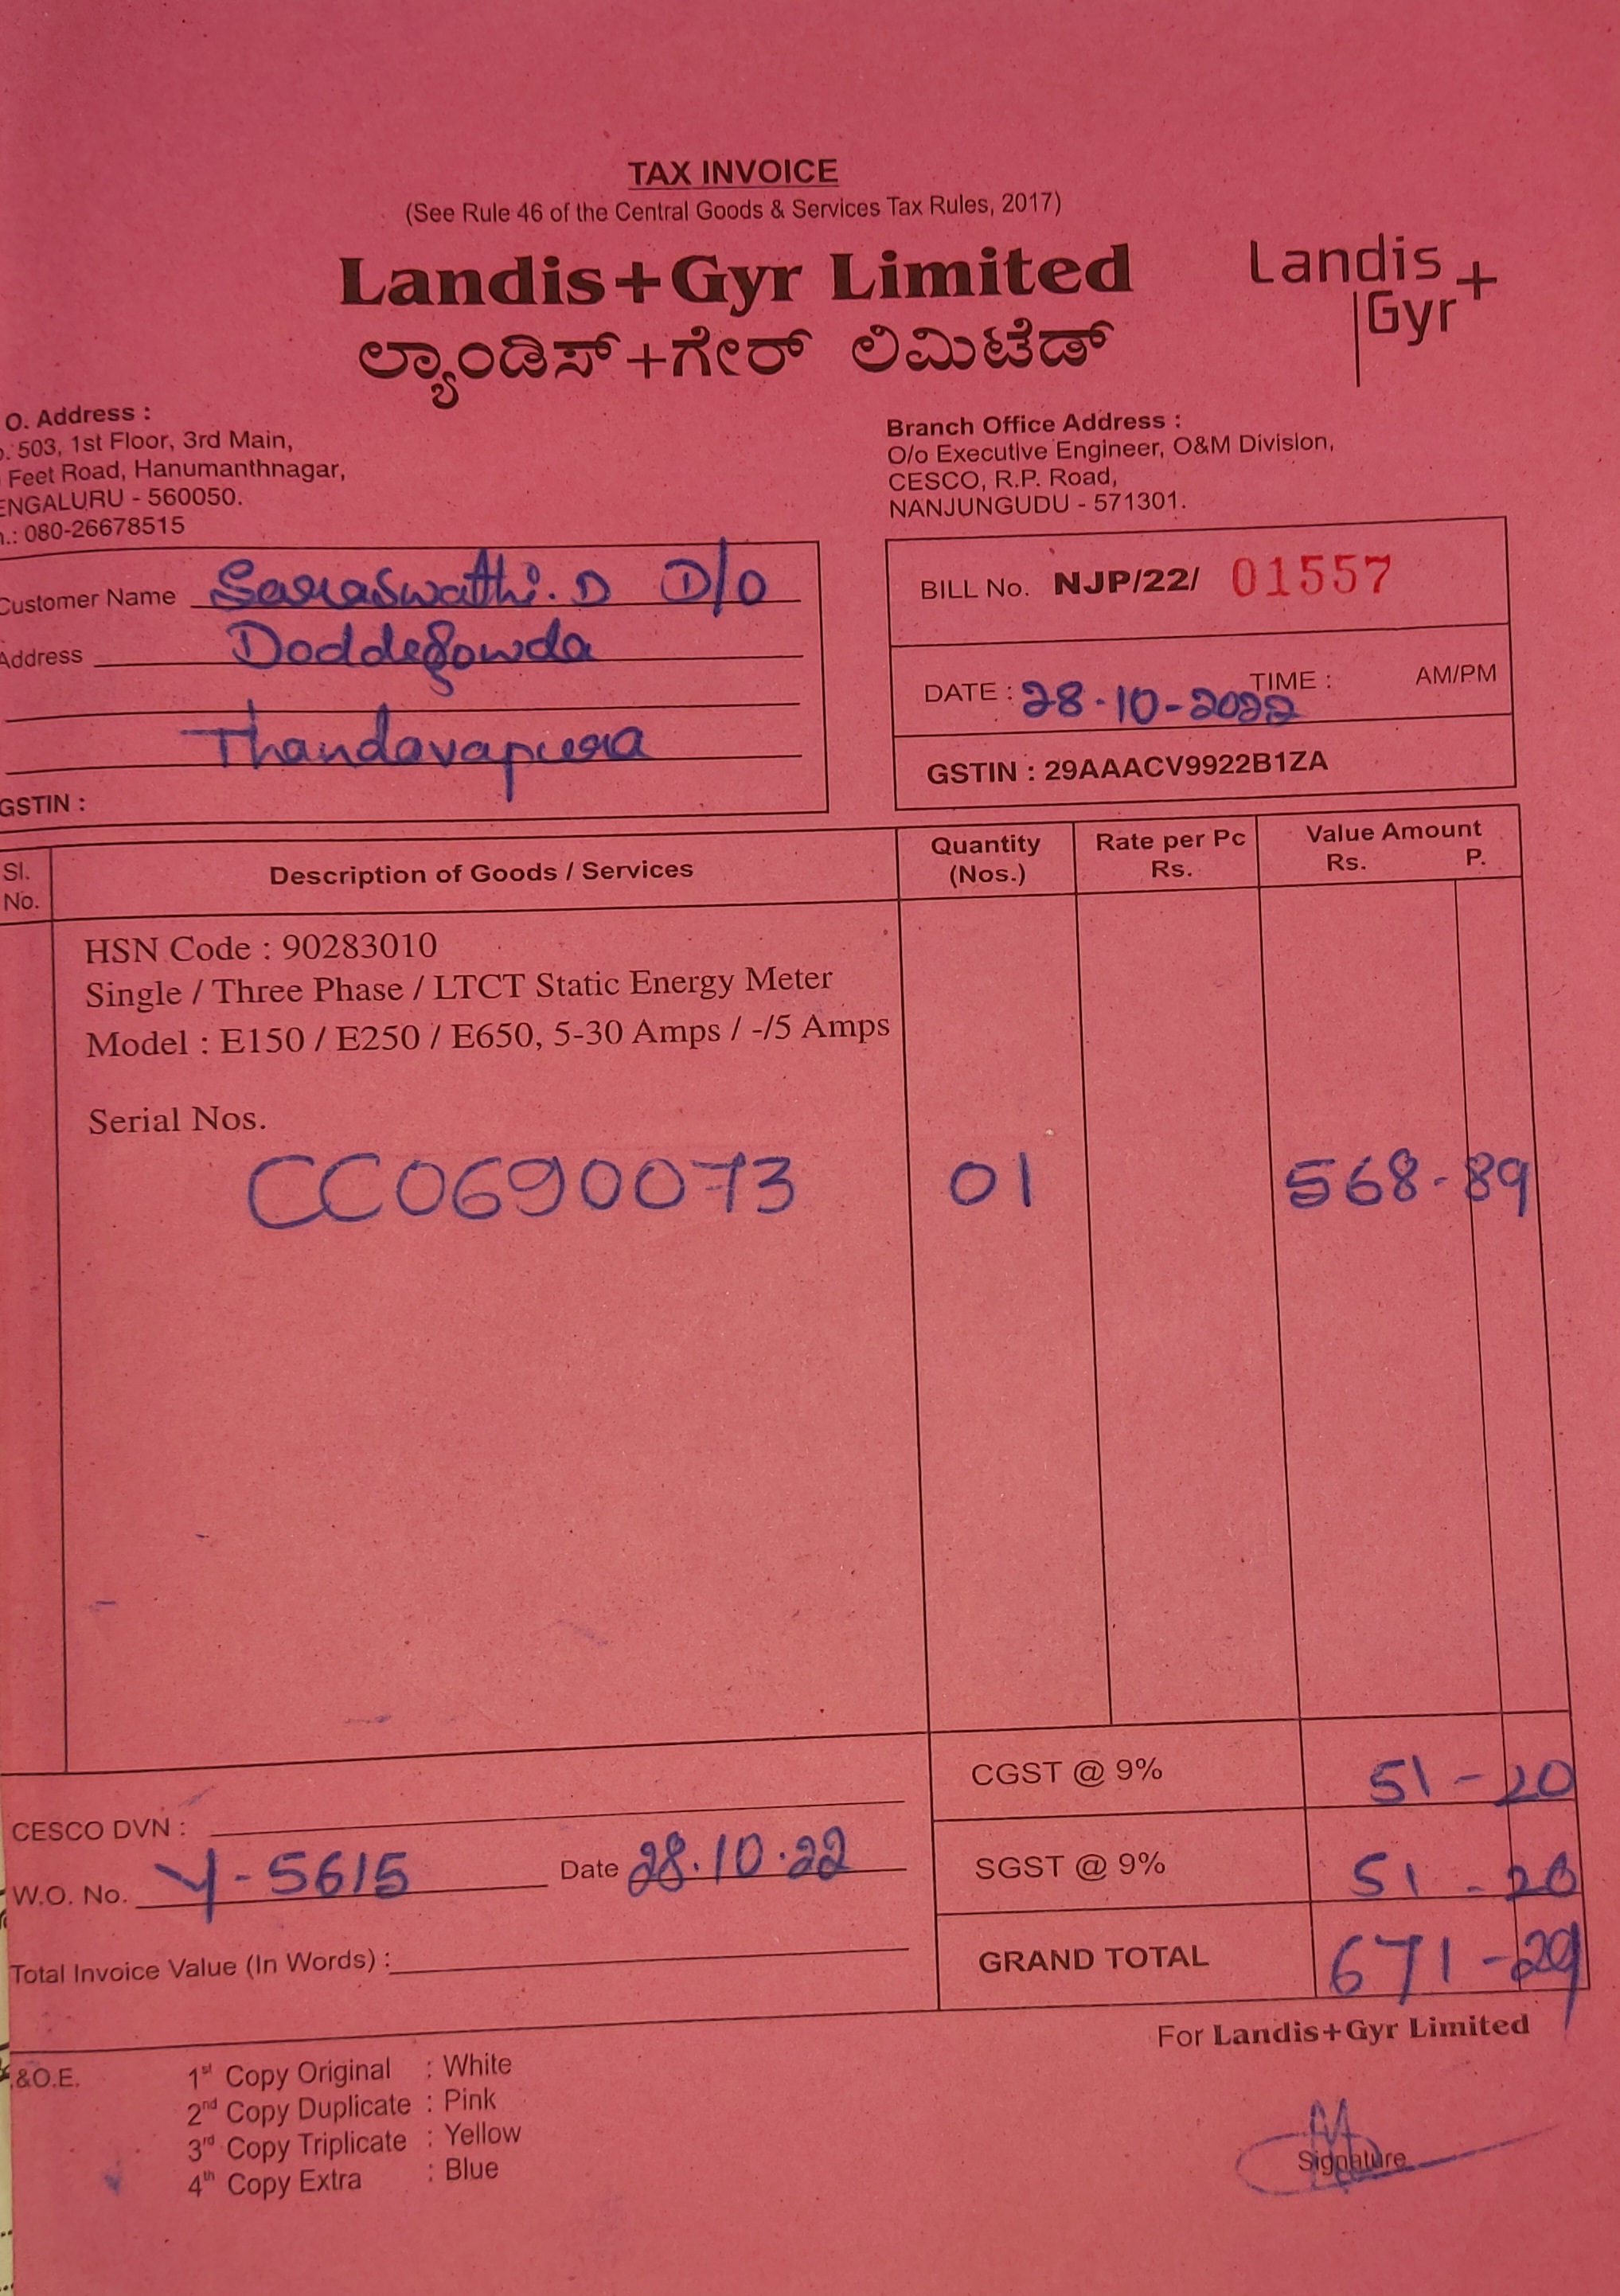 TAX INVOICE
(See Rule 46 of the Central Goods & Services Tax Rules, 2017)
Landis+Gyr Limited
ಲ್ಯಾಂಡಿಸ್+ಗೇರ್ ಲಿಮಿಟೆಡ್
Landis+
Gyr
O. Address :
503, 1st Floor, 3rd Main,
Feet Road, Hanumanthnagar,
ENGALURU - 560050.
080-26678515
Branch Office Address :
O/o Executive Engineer, O&M Division,
CESCO, R.P. Road,
NANJUNGUDU - 571301.
Customer Name Saraswathi.D D/O
Address Doddegowda
Thandavapura
GSTIN :
BILL No. NJP/22/ 01557
DATE : 28-10-2022 TIME : AM/PM
GSTIN : 29AAACV9922B1ZA
Sl. No. Description of Goods / Services Quantity (Nos.) Rate per Pc Rs. Value Amount Rs. P.
HSN Code : 90283010
Single / Three Phase / LTCT Static Energy Meter
Model : E150 / E250 / E650, 5-30 Amps / -/5 Amps
Serial Nos.
CC0690073 01 568-89
CGST @ 9% 51-20
CESCO DVN :
SGST @ 9% 51-20
W.O. No. Y-5615 Date 28.10.22
GRAND TOTAL 671-29
Total Invoice Value (In Words) :
For Landis+Gyr Limited
&O.E.
1st Copy Original : White
2nd Copy Duplicate : Pink
3rd Copy Triplicate : Yellow
4th Copy Extra : Blue
Signature